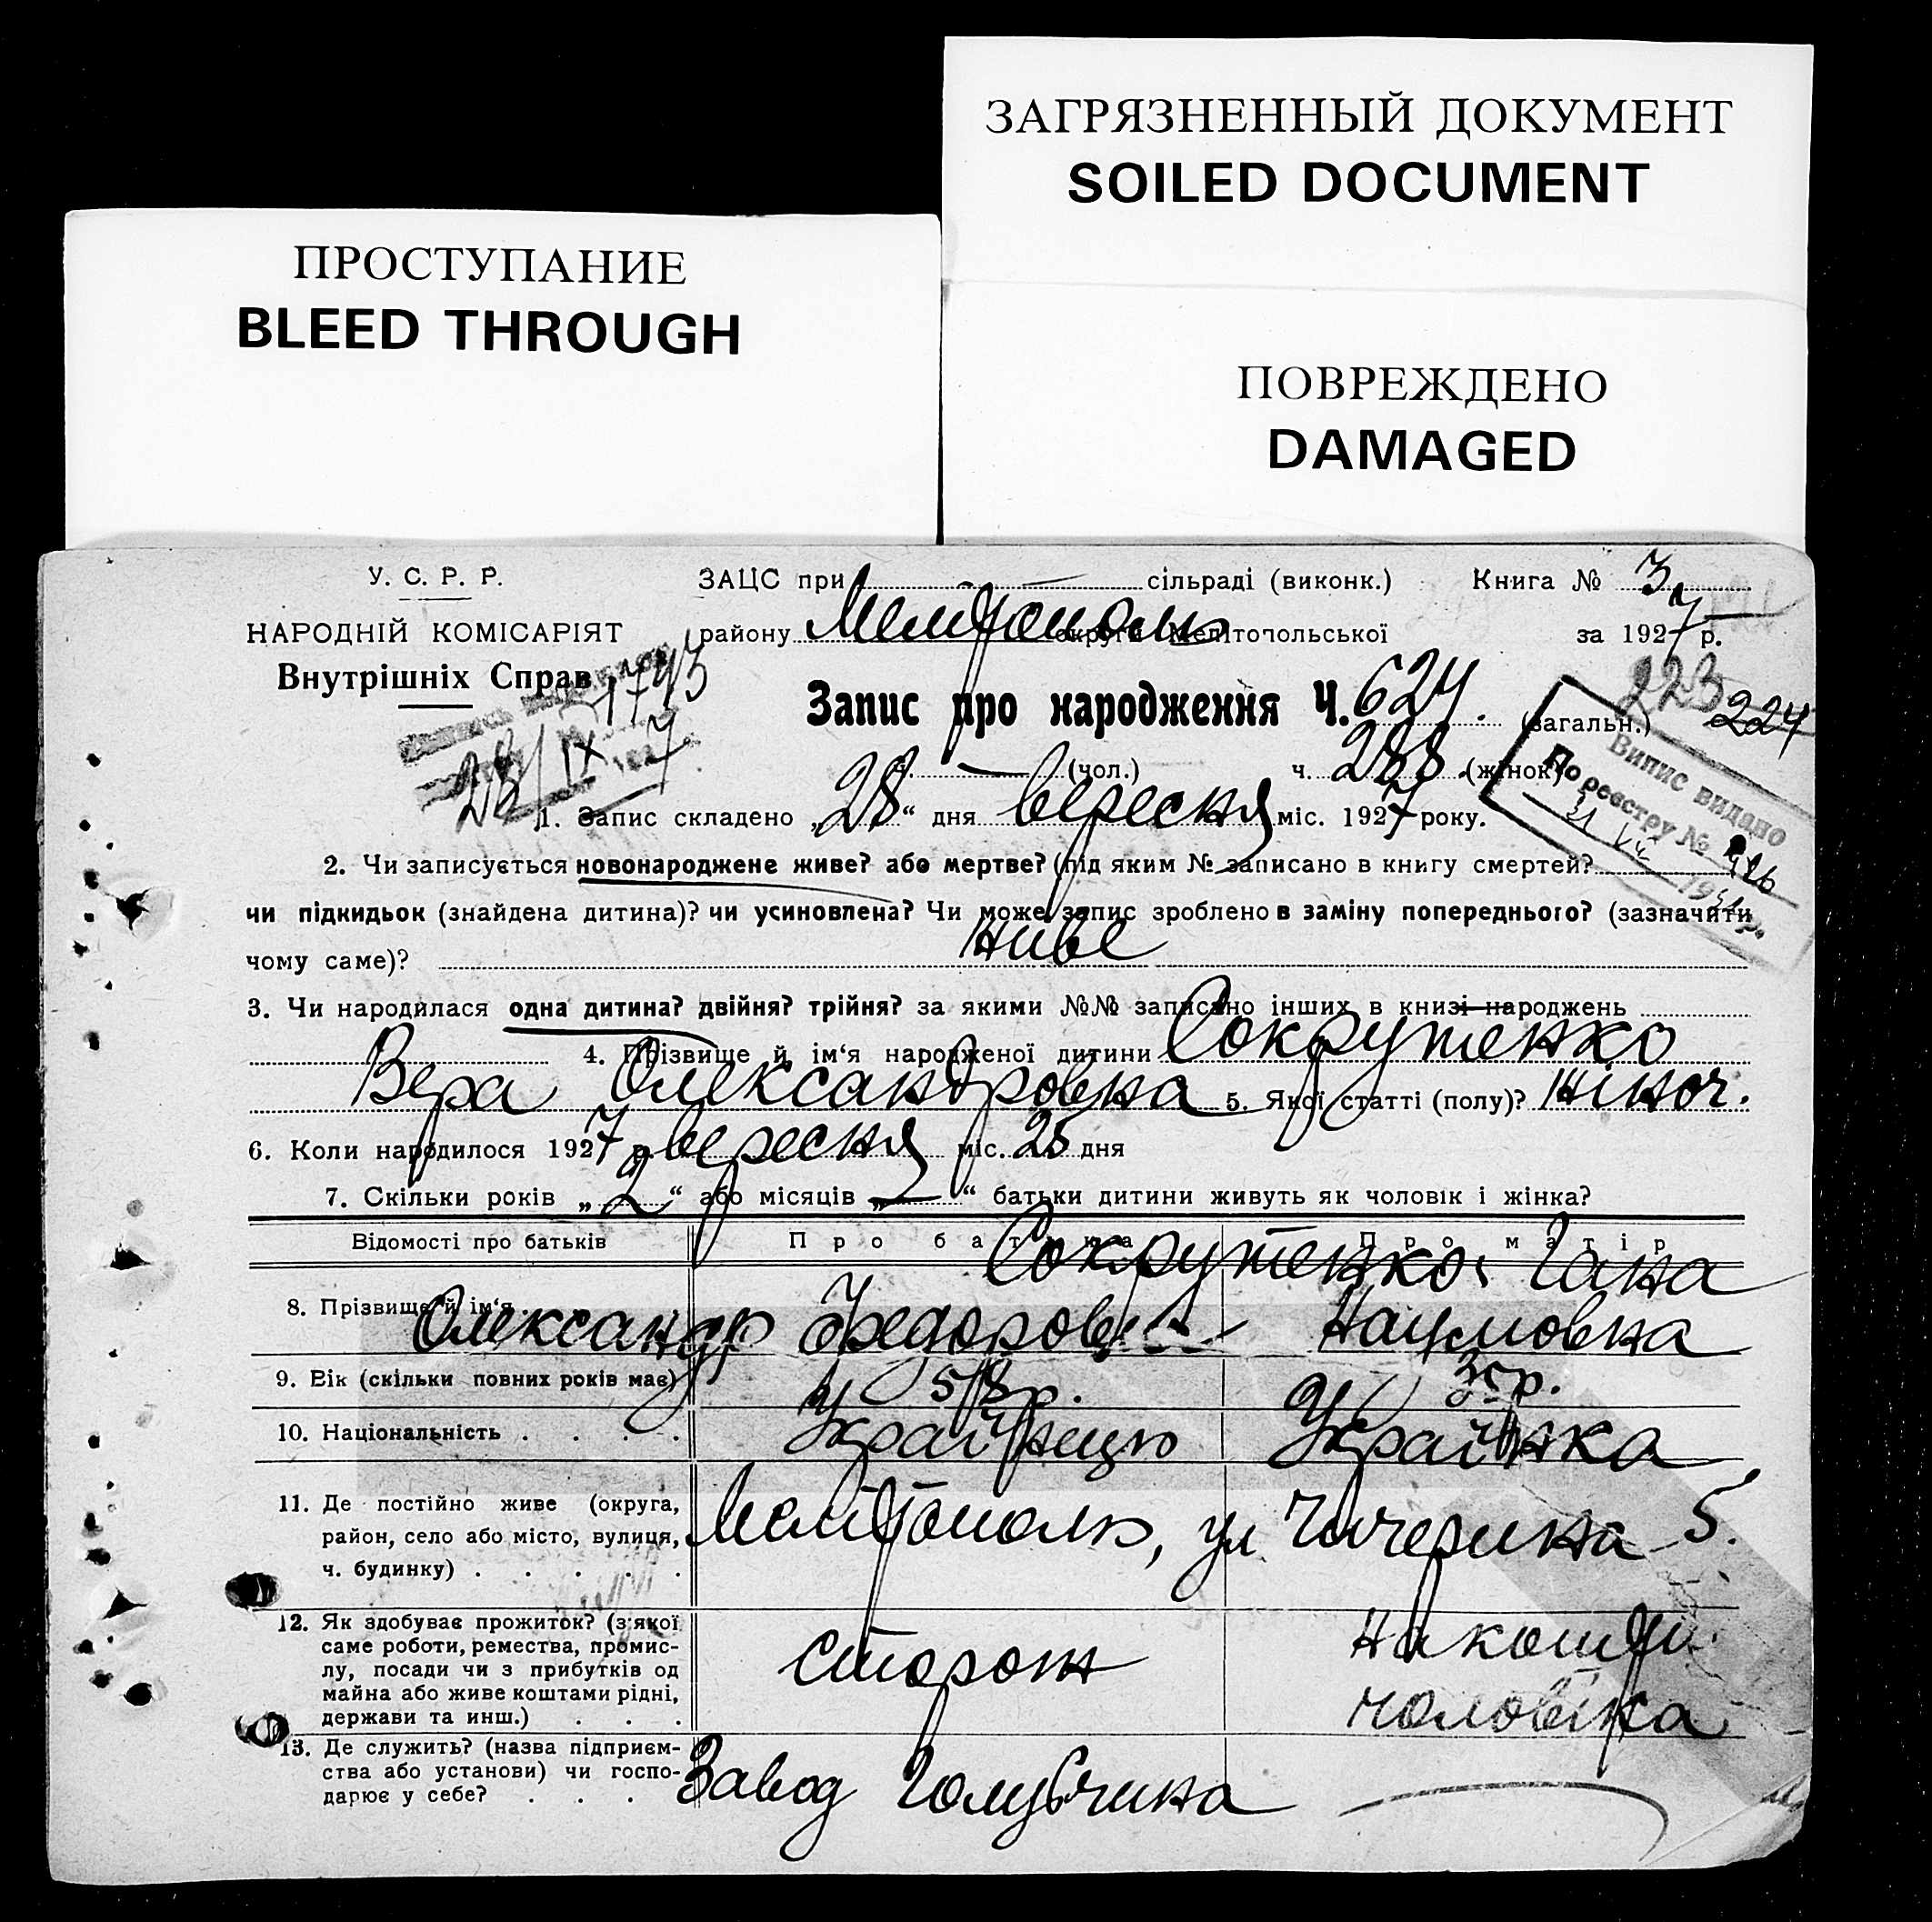 ЗАГРЯЗНЕННЫЙ ДОКУМЕНТ
SOILED DOCUMENT
ПРОСТУПАНИЕ
BLEED THROUGH
ПОВРЕЖДЕНО
DAMAGED
У. С. Р. Р.
НАРОДНІЙ КОМІСАРІЯТ
Внутрішніх Справ
ЗАЦС при сільраді (виконк.) Книга № 3
району Мелітополь округи Мелітопольської за 1927 р.
1743
28/IX 7
Запис про народження Ч. 624. (загальн.)
223
224
ч. — (чол.) ч. 288 (жінок)
Випис видано
По реєстру №
1. Запис складено „28“ дня вересня міс. 1927 року.
2. Чи записується новонароджене живе? або мертве? (під яким № записано в книгу смертей?
чи підкидьок (знайдена дитина)? чи усиновлена? Чи може запис зроблено в заміну попереднього? (зазначити
чому саме)? живе
3. Чи народилася одна дитина? двійня? трійня? за якими №№ записано інших в книзі народжень
4. Прізвище й ім‘я народженої дитини Сокрутенко
Вера Олександровна 5. Якої статті (полу)? жіноч.
6. Коли народилося 1927 р. вересня міс. 25 дня
7. Скільки років „2“ або місяців „—“ батьки дитини живуть як чоловік і жінка?
Відомості про батьків Про батька Про матір
8. Прізвище й ім‘я Сокрутенко Гана
Олександр Федоров Наумовна
9. Вік (скільки повних років має) 58 р. 35 р.
10. Національність . . . . Українець Українка
11. Де постійно живе (округа,
район, село або місто, вулиця,
ч. будинку) . . . . . Мелітополь, ул Чичерина 5.
12. Як здобуває прожиток? (з якої
саме роботи, ремества, промис-
лу, посади чи з прибутків од
майна або живе коштами рідні,
держави та инш.) . . . Сторож на кошти чоловіка
13. Де служить? (назва підприєм-
ства або установи) чи госпо-
дарює у себе? . . . Завод Голубчина